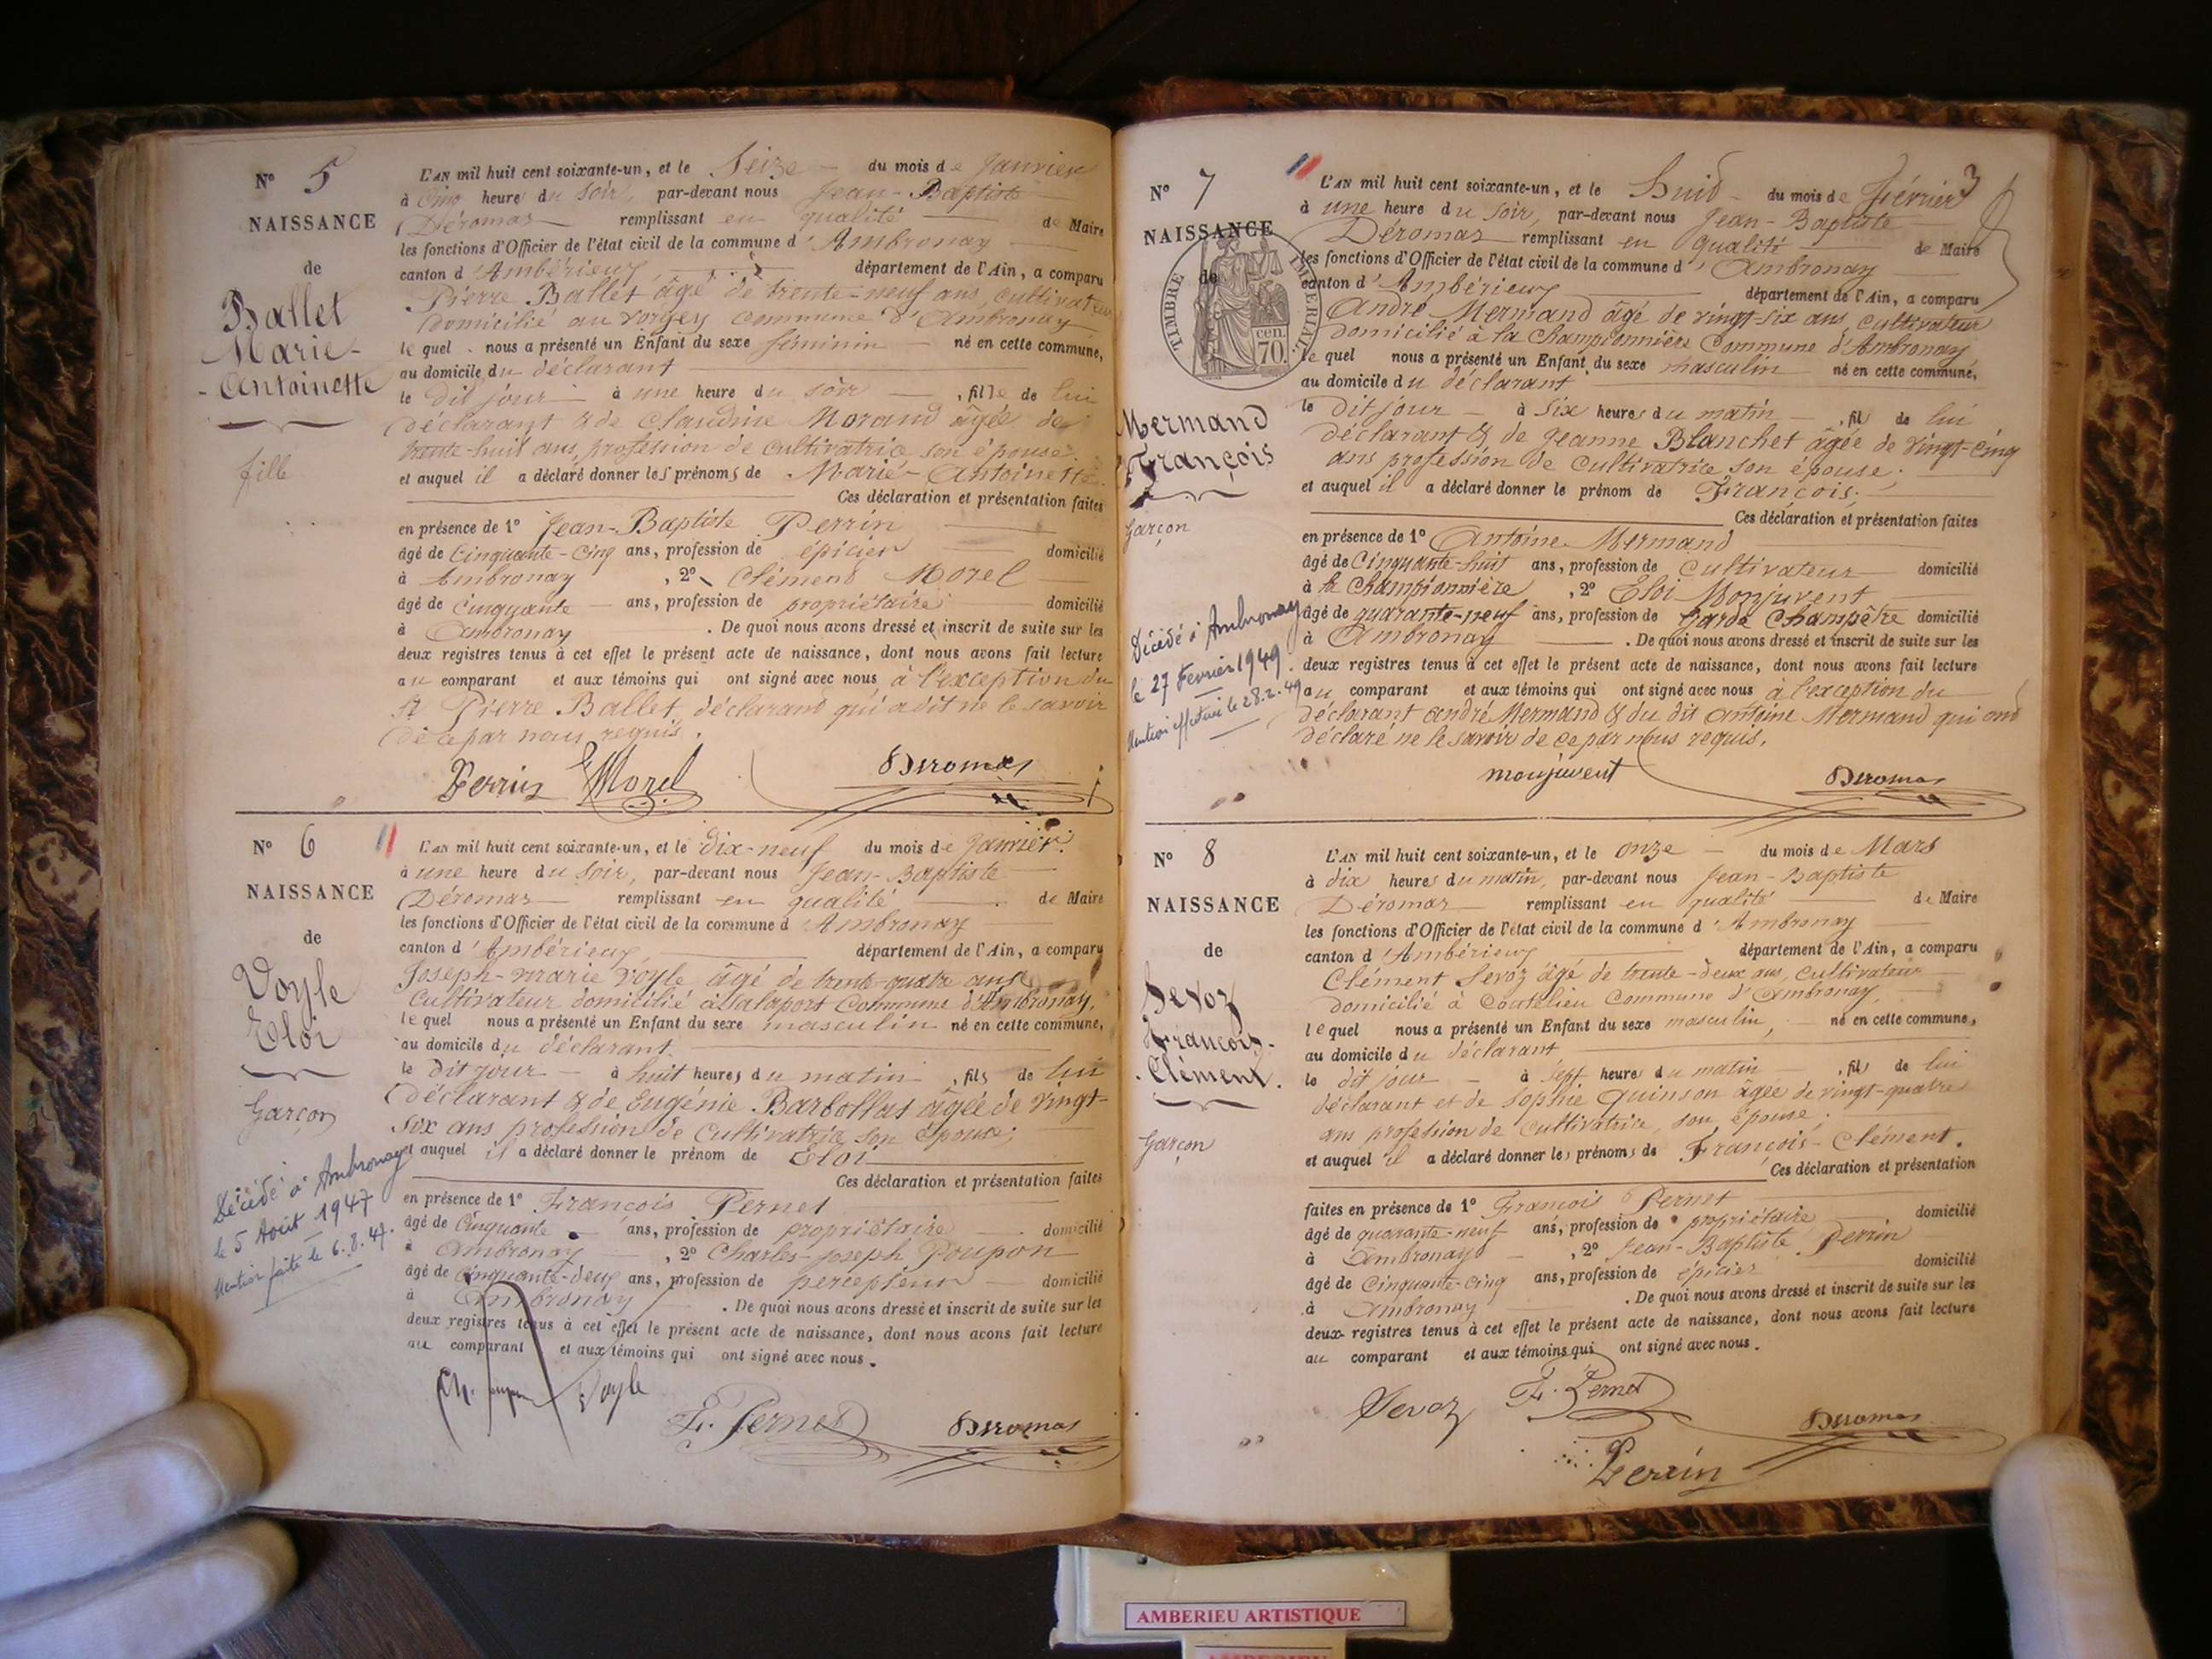 N° 5
NAISSANCE
de
Ballet
Marie-
-Antoinette
fille
L'AN mil huit cent soixante-un, et le Seize du mois de Janvier
à Cinq heure du Soir, par-devant nous Jean-Baptiste
Déromas remplissant en qualité de Maire
les fonctions d'Officier de l'état civil de la commune d'Ambronay
canton d'Ambérieux département de l'Ain, a comparu
Pierre Ballet âgé de trente-neuf ans, cultivateur
domicilié au vorgey commune d'Ambronay
lequel nous a présenté un Enfant du sexe féminin né en cette commune,
au domicile du déclarant
le dit jour à une heure du soir, fille de lui
déclarant & de Claudine Morand âgée de
trente-huit ans, profession de cultivatrice son épouse.
et auquel il a déclaré donner les prénoms de Marie-Antoinette.
Ces déclaration et présentation faites
en présence de 1° Jean-Baptiste Perrin
âgé de Cinquante-Cinq ans, profession de épicier domicilié
à Ambronay, 2° Clément Morel
âgé de cinquante ans, profession de propriétaire domicilié
à Ambronay. De quoi nous avons dressé et inscrit de suite sur les
deux registres tenus à cet effet le présent acte de naissance, dont nous avons fait lecture
au comparant et aux témoins qui ont signé avec nous à l'exception du
St Pierre Ballet, déclarant qui a dit ne le savoir
de ce par nous requis.
Perrin Morel Deromas
N° 6
NAISSANCE
de
Voyle
Eloi
Garçon
Décédé à Ambronay
le 5 Août 1947
Mention faite le 6.8.47.
L'AN mil huit cent soixante-un, et le dix-neuf du mois de Janvier.
à une heure du Soir, par-devant nous Jean-Baptiste
Déromas remplissant en qualité de Maire
les fonctions d'Officier de l'état civil de la commune d'Ambronay
canton d'Ambérieux département de l'Ain, a comparu
Joseph-marie Voyle âgé de trente-quatre ans
Cultivateur domicilié à Salaport Commune d'Ambronay.
lequel nous a présenté un Enfant du sexe masculin né en cette commune,
au domicile du déclarant.
le dit jour à huit heures du matin, fils de lui
déclarant & de Eugénie Barbollat âgée de vingt-
six ans profession de Cultivatrice son épouse;
et auquel il a déclaré donner le prénom de Eloi
Ces déclaration et présentation faites
en présence de 1° François Pernet
âgé de Cinquante ans, profession de propriétaire domicilié
à Ambronay, 2° Charles-Joseph Poupon
âgé de cinquante-deux ans, profession de percepteur domicilié
à Ambronay. De quoi nous avons dressé et inscrit de suite sur les
deux registres tenus à cet effet le présent acte de naissance, dont nous avons fait lecture
au comparant et aux témoins qui ont signé avec nous.
Voyle F. Pernet Deromas
3
N° 7
NAISSANCE
de
TIMBRE IMPERIAL.
70. cen
Mermand
François
Garçon
Décédé à Ambronay
le 27 Février 1949.
Mention effectuée le 28.2.49
L'AN mil huit cent soixante-un, et le huit du mois de Février
à une heure du Soir, par-devant nous Jean-Baptiste
Déromas remplissant en qualité de Maire
les fonctions d'Officier de l'état civil de la commune d'Ambronay
canton d'Ambérieux département de l'Ain, a comparu
André Mermand âgé de vingt-six ans, Cultivateur
domicilié à la Championnière Commune d'Ambronay
lequel nous a présenté un Enfant du sexe masculin né en cette commune,
au domicile du déclarant
le Dit jour à Six heures du matin, fils de lui
déclarant & de Jeanne Blanchet âgée de vingt-cinq
ans profession de Cultivatrice son épouse;
et auquel il a déclaré donner le prénom de François;
Ces déclaration et présentation faites
en présence de 1° Antoine Mermand
âgé de Cinquante-huit ans, profession de cultivateur domicilié
à la Championnière, 2° Eloi Monjuvent
âgé de quarante-neuf ans, profession de Garde Champêtre domicilié
à Ambronay. De quoi nous avons dressé et inscrit de suite sur les
deux registres tenus à cet effet le présent acte de naissance, dont nous avons fait lecture
au comparant et aux témoins qui ont signé avec nous à l'exception du
déclarant andré Mermand & du dit antoine Mermand qui ont
déclaré ne le savoir de ce par nous requis.
monjuvent Deromas
N° 8
NAISSANCE
de
Sevoz
François-
Clément.
Garçon
L'AN mil huit cent soixante-un, et le onze du mois de Mars
à dix heures du matin, par-devant nous Jean-Baptiste
Déromas remplissant en qualité de Maire
les fonctions d'Officier de l'état civil de la commune d'Ambronay
canton d'Ambérieux département de l'Ain, a comparu
Clément Sevoz âgé de trente-deux ans, cultivateur
domicilié à Coutelieu Commune d'Ambronay,
lequel nous a présenté un Enfant du sexe masculin, né en cette commune,
au domicile du déclarant
le dit jour à sept heures du matin, fils de lui
déclarant et de Sophie Quinson âgée de vingt-quatre
ans profession de cultivatrice, son épouse;
et auquel il a déclaré donner les prénoms de François-Clément.
Ces déclaration et présentation
faites en présence de 1° François Pernet
âgé de quarante-neuf ans, profession de propriétaire domicilié
à Ambronay, 2° Jean-Baptiste Perrin
âgé de Cinquante-cinq ans, profession de épicier domicilié
à Ambronay. De quoi nous avons dressé et inscrit de suite sur les
deux registres tenus à cet effet le présent acte de naissance, dont nous avons fait lecture
au comparant et aux témoins qui ont signé avec nous.
Sevoz F. Pernet Deromas
Perrin
AMBERIEU ARTISTIQUE
AMBERIEU